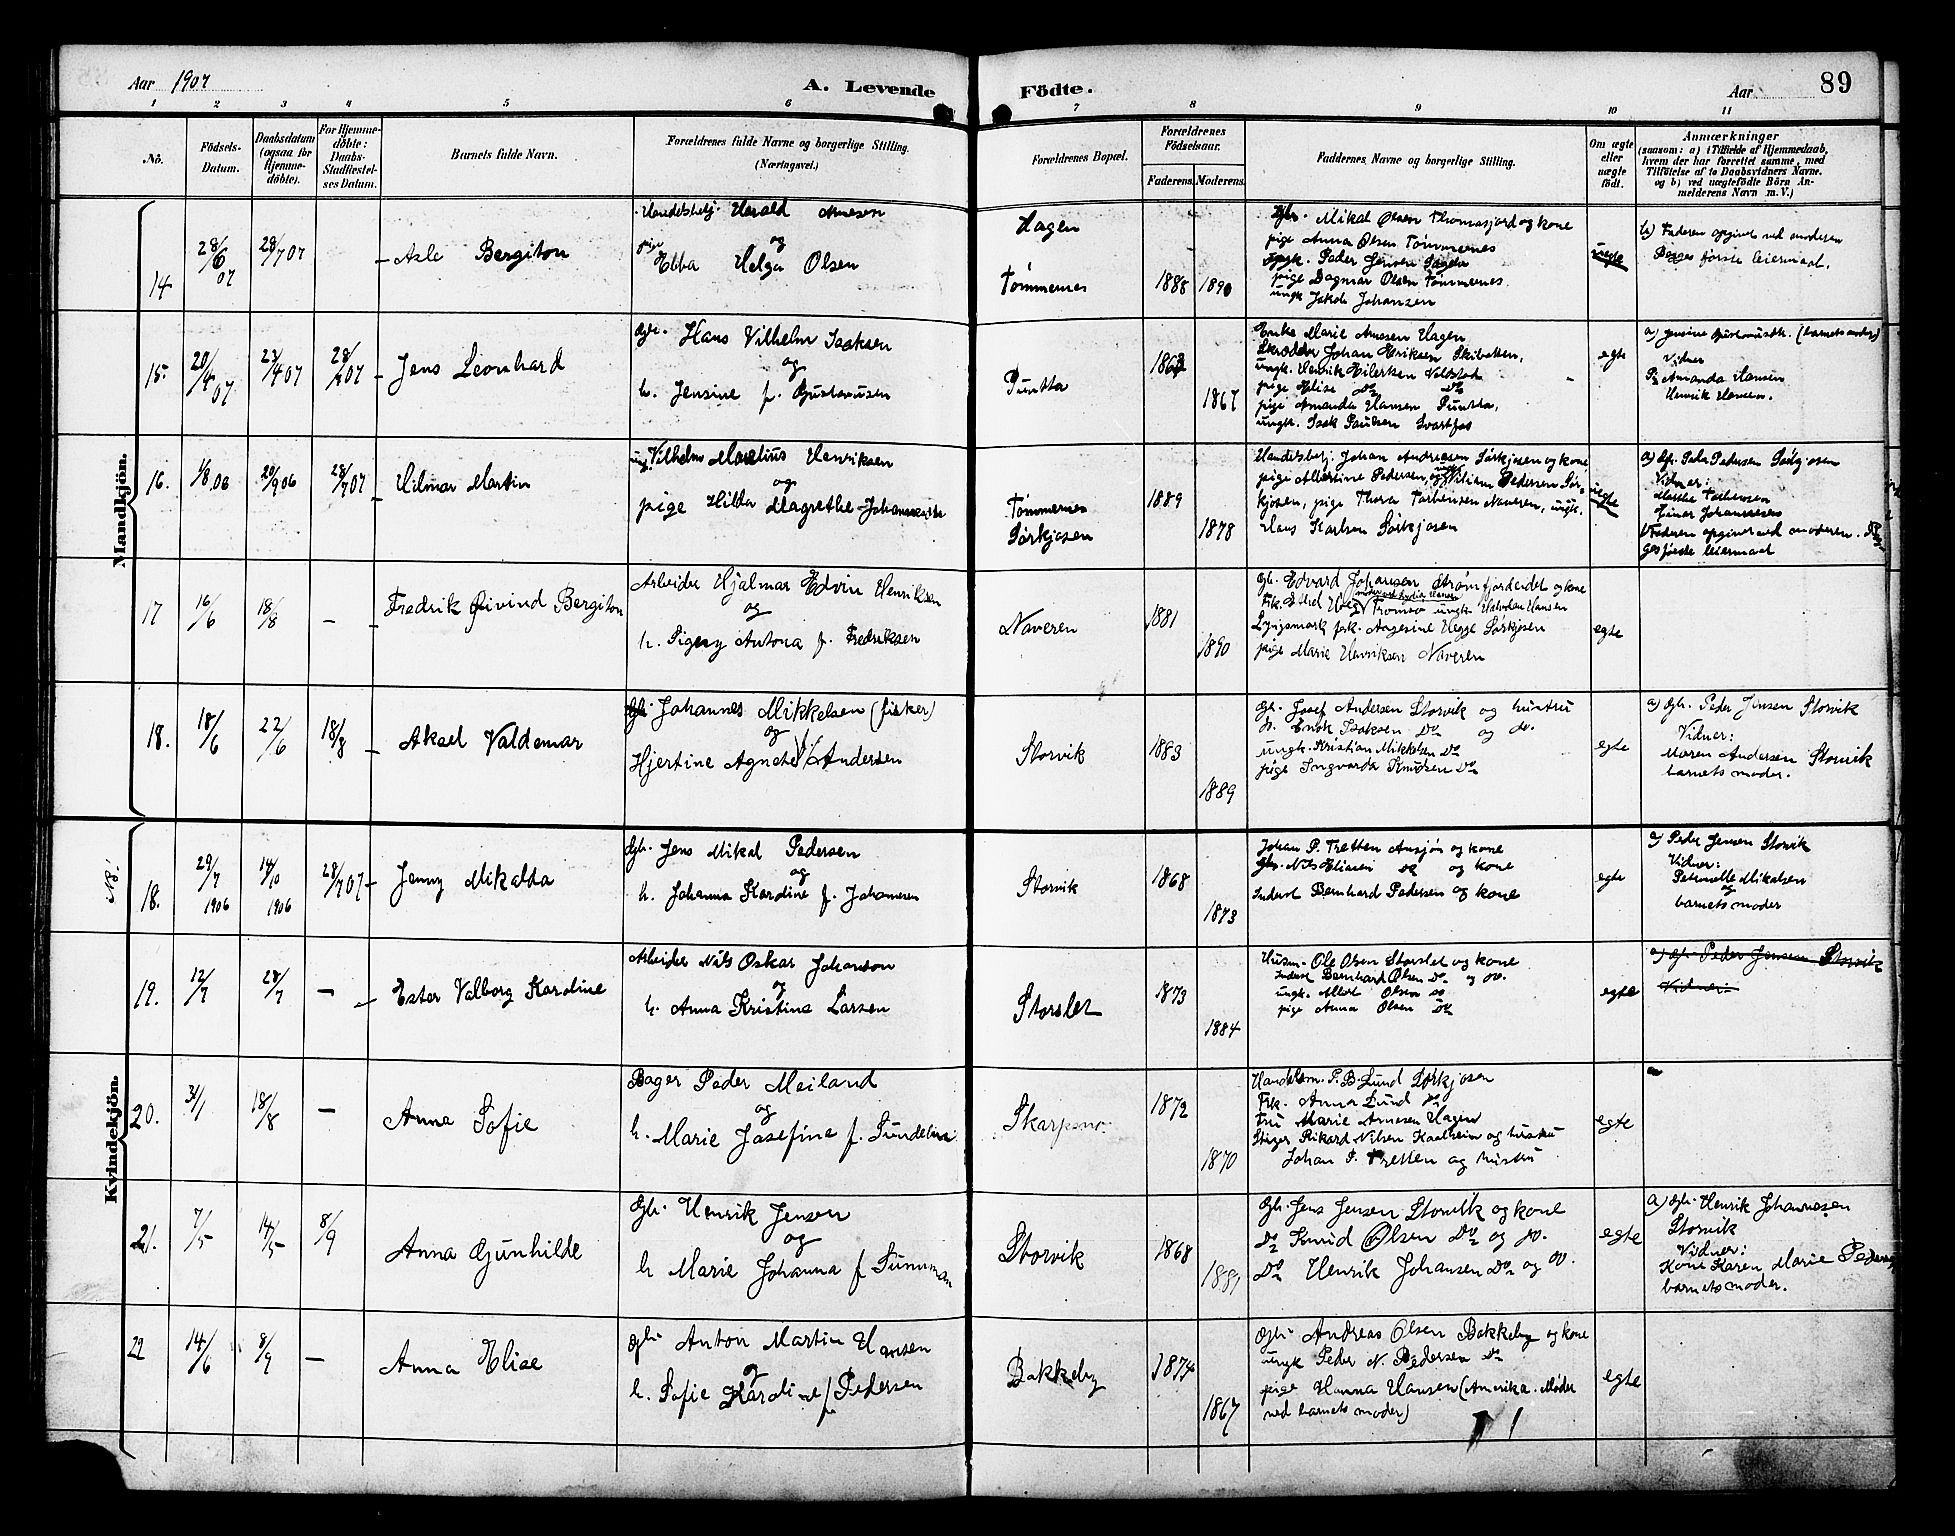 Aar 1907 A. Levende Födte. Aar 89
1 2 3 4 5 6 7 8 9 10 11
No.
Födsels-Datum.
Daabsdatum (ogsaa for Hjemmedöbte).
For Hjemmedöbte: Daabs-Stadfæstelses Datum.
Barnets fulde Navn.
Forældrenes fulde Navne og borgerlige Stilling. (Næringsvei.)
Forældrenes Bopæl.
Forældrenes Födselsaar.
Faderens. Moderens.
Faddernes, Navne og borgerlige Stilling.
Om ægte eller uægte födt.
Anmærkninger
(saasom: a) i Tilfælde af Hjemmedaab, hvem der har forrettet samme, med Tilföielse af to Daabsvidners Navne. og b) ved uægtefödte Börn Anmelderens Navn m. V.)
Mandkjön.
14 28/6 07 28/7 07 Asle Bergiton
Handelsbetj. Harald Arnesen
og
pige Ebba Helga Olsen
Hagen
Tømmernes
1888 1890
Gbr. Mikal Olsen Thomasjord og kone
pige Anna Olsen Tømmernes
ungk. Peder Jensen
pige Dagmar Olsen Tømmernes
ungk Jakob Johansen
uegte
b) Faderen opgivet ved moderen
Begges første leiermaal.
15. 20/4 07 23/4 07 28/7 07 Jens Leonhard
Gbr. Hans Vilhelm Isaksen
og
h. Jensine f. Gustavusen
Puntta
1867
Enke Marie Arnesen Hagen
Skrædder Johan Eriksen Skibotten,
ungk. Henrik Eilertsen
pige Elise Do Do
pige Amanda Hansen Puntta,
ungk. Isak Paulsen Svartfos
egte
Vidner
Pi Amanda Hansen
Henrik Hansen.
16. 1/8 06 20/9 06 28/7 07 Hilmar Martin
ungk. Vilhelm Martinus Henriksen
og
pige Hilda Magrethe Johannesdtr
Tømmernes
Sørkjosen
1889 1878
Handelsbetj. Johan Andreasen Sørkjosen og kone
pige Albertine Pedersen, ungk Viliam Pedersen Sør-
kjosen, pige Thora Torbensen Naveren, ungk.
Hans Karlsen Sørkjosen
uegte
a) Gbr. Peder Pedersen Sørkjosen
Vidner:
Einar Johannesen
Faderen opgivet ved moderen.
første leiermaal
17 16/6 18/8 - Fredrik Øivind Bergiton
Arbeider Hjalmar Edvin Henriksen
og
h. Signy Antona f. Fredriksen
Naveren
1881 1890
Gbr. Edvard Johansen Strømfjordeidet og kone
Frk. Ethel Tromsø ungk Halvdan Hansen
Lyngsmark frk. Aagesine Hegge Sørkjosen
pige Marie Henriksen Naveren
egte
18. 18/6 22/6 18/8 Aksel Valdemar
Gbr. Johannes Mikkelsen (fisker)
og
Hjertine Agnete f. Andersen
Storvik
1883 1889
Gbr. Josef Andersen Storvik og hustru
Gr. Enok Isaksen Do og do.
ungk. Kristian Mikkelsen Do
pige Ingvarda Knudsen Do
egte
a) Gbr. Peder Jensen Storvik
Vidner:
Maren Andersen Storvik
barnets moder.
Kvindekjön.
N8!
18. 29/7 1906 14/10 1906 28/7 07 Jenny Mikalda
Gbr. Jens Mikal Pedersen
og
h. Johanna Kardine f. Johannesen
Storvik
1868 1873
Johan P. Tretten Ansjøn og kone
Gbr. Nils Eliasen Do og kone
Inderst Bernhard Pedersen og kone
egte
a) Peder Jensen Storvik
Vidner:
Petronelle Mikalsen
og
barnets moder
19. 12/7 28/7 - Ester Valborg Kardine
Arbeider Nils Oskar Johanson
og
h. Anna Kristina Larsen
Storslet
1873 1884
Husm. Ole Olsen Storslet og kone
Inderst Bernhard Olsen Do og do.
ungk. Albert Olsen Do
pige Anna Olsen Do
egte
a) Gbr. Peder Jensen Storvik
Vidner:
20. 31/1 18/8 - Anna Sofie
Bager Peder Meiland
og
h. Marie Josefine f. Sundelin
Skarpsno
1872 1870
Handelsm. P. B. Lund Sørkjosen
Frk. Anna Lund Do
Fru Marie Arnesen Hagen
Stiger Rikard Nilsen Kaalheim og hustru
Johan P. Tretten og hustru
egte
21. 7/5 14/5 8/9 Anna Gunhilde
Gbr. Henrik Jensen
og
h Marie Johanna f
Storvik
1868 1881
Gbr. Jens Jensen Storvik og kone
Do Knud Olsen Do og do.
Do Henrik Johansen Do og do.
egte
a) Gbr. Henrik Johannesen
Storvik
Vidner:
Kone Karen Marie
barnets moder.
22 14/6 8/9 - Anna Elise
Gbr Anton Martin Hansen
og
h. Sofie Kardine f Pedersen
Bakkeby
1874 1867
Gbr Andreas Olsen Bakkeby og kone
ungk Peder N. Pedersen Do
pige Hanna Hansen (Amerika. Møder
ved barnets moder)
egte